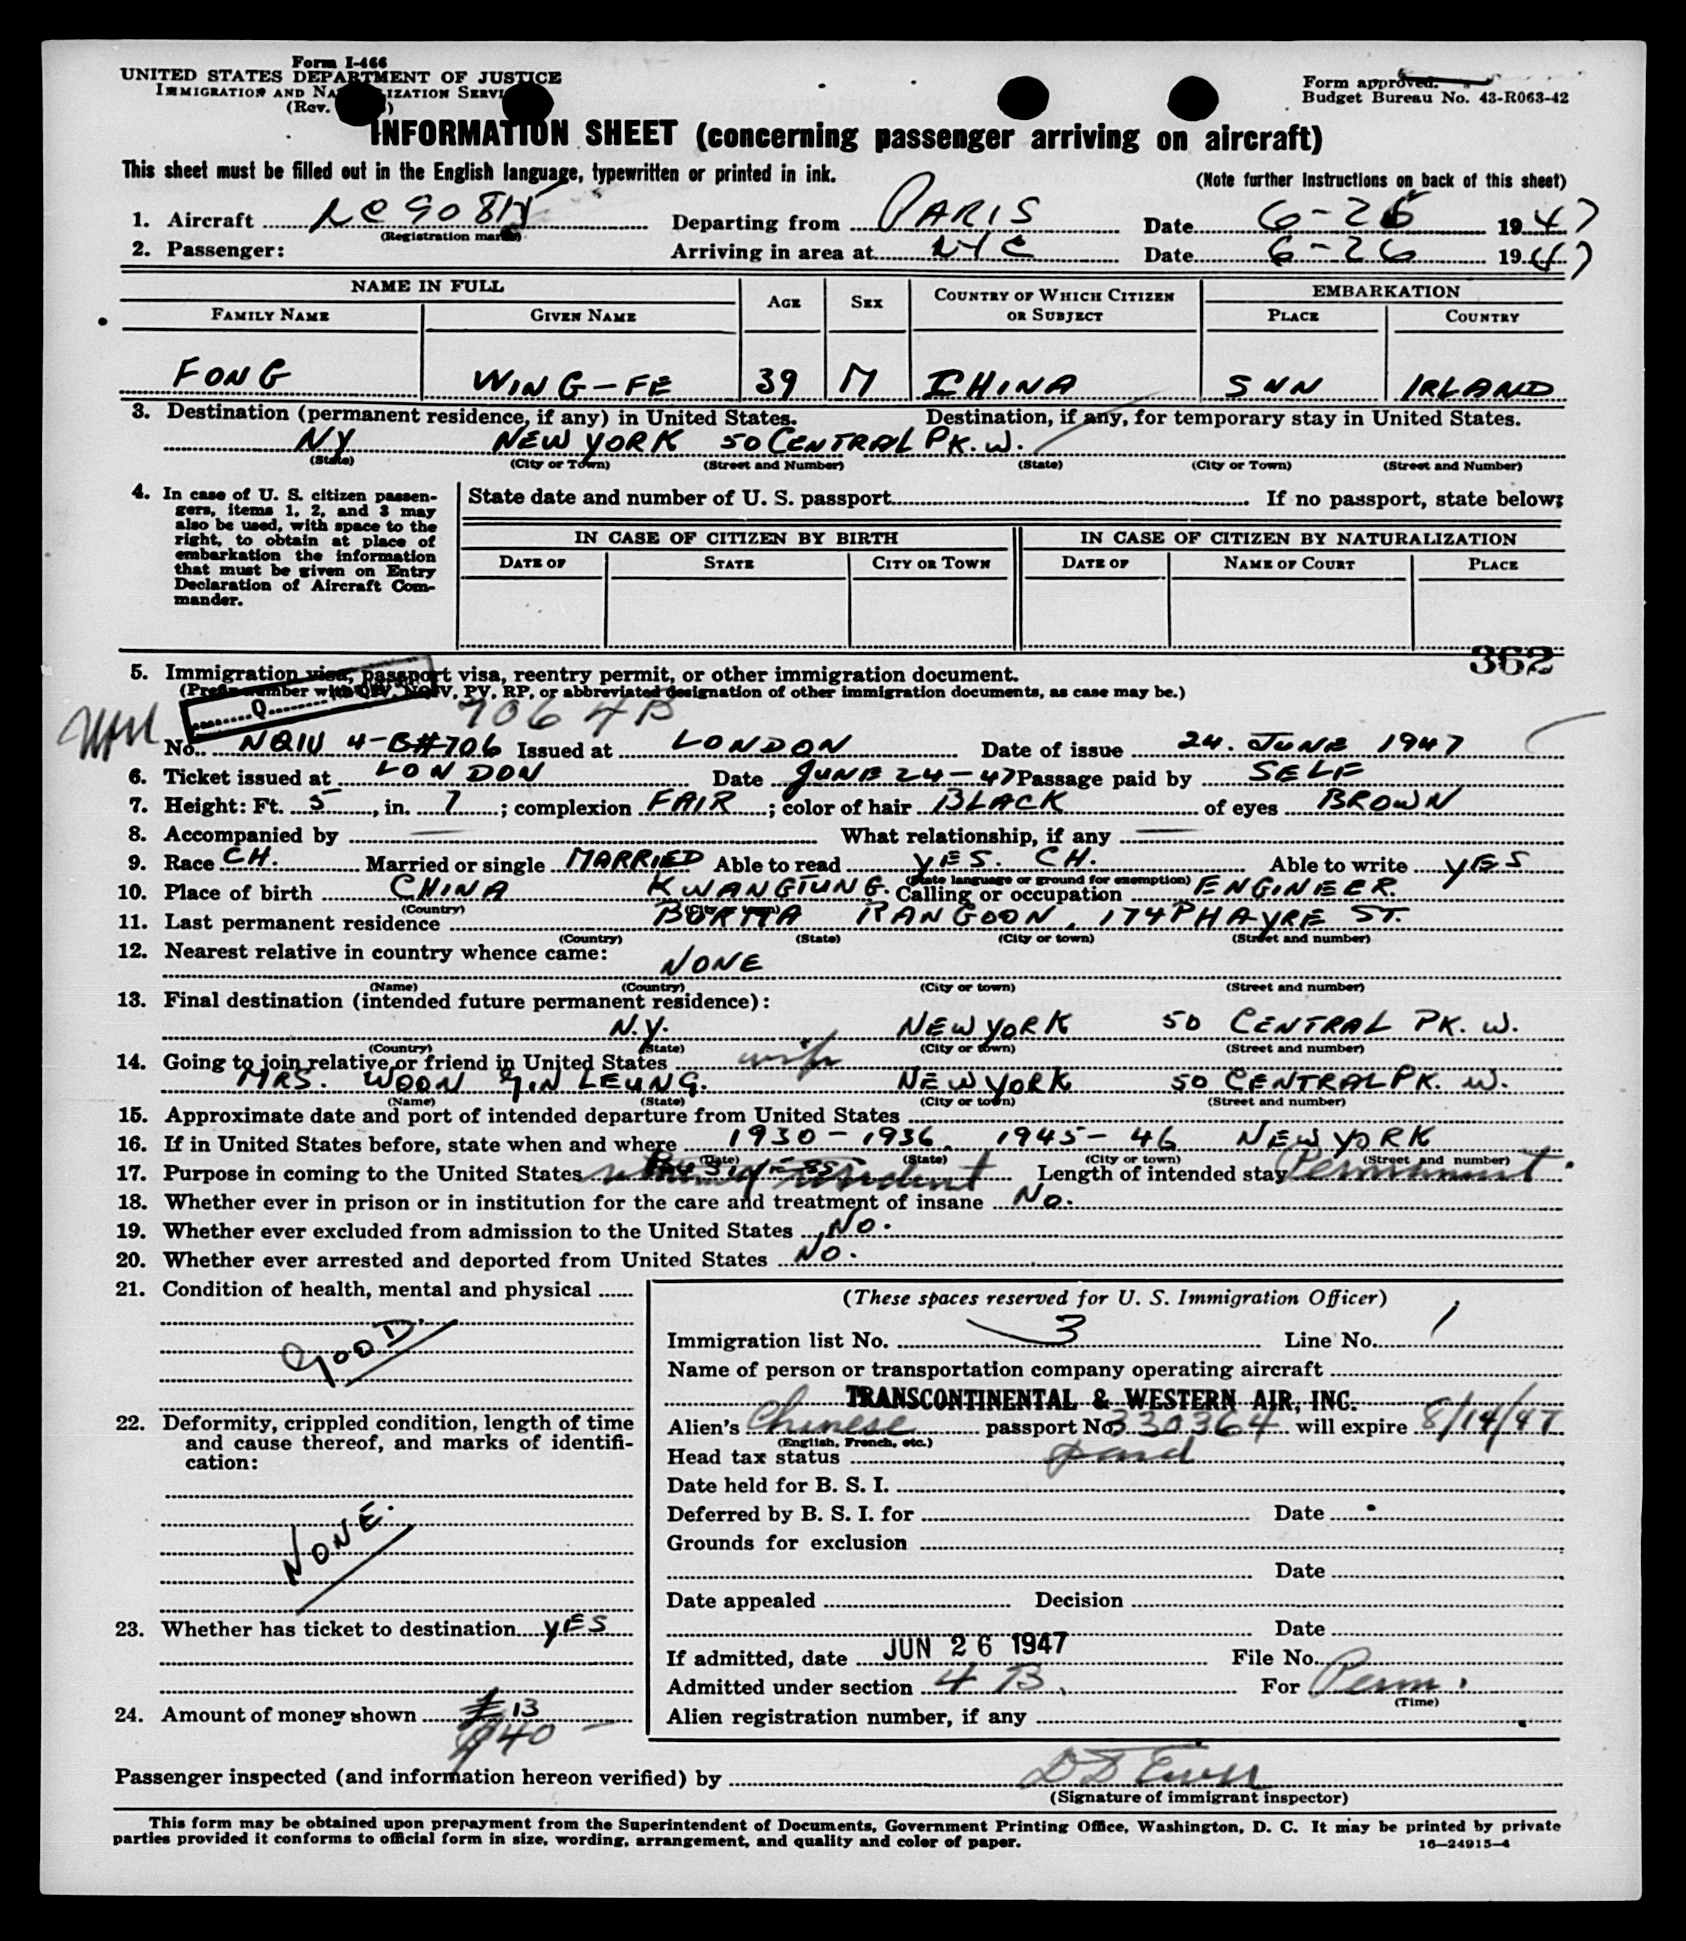 Form I-466
UNITED STATES DEPARTMENT OF JUSTICE
IMMIGRATION AND NATURALIZATION SERVICE
(Rev.
Form approved.
Budget Bureau No. 43-R063-42
INFORMATION SHEET (concerning passenger arriving on aircraft)
This sheet must be filled out in the English language, typewritten or printed in ink.
(Note further instructions on back of this sheet)
1. Aircraft Departing from PARIS Date 6-25 1947
(Registration marks)
2. Passenger: Arriving in area at NYC Date 6-26 1947
NAME IN FULL AGE SEX COUNTRY OF WHICH CITIZEN OR SUBJECT EMBARKATION
FAMILY NAME GIVEN NAME PLACE COUNTRY
FONG WING-FE 39 M CHINA SNN IRLAND
3. Destination (permanent residence, if any) in United States. Destination, if any, for temporary stay in United States.
NY NEW YORK 50 CENTRAL PK. W.
(State) (City or Town) (Street and Number) (State) (City or Town) (Street and Number)
4. In case of U. S. citizen passengers, items 1, 2, and 3 may also be used, with space to the right, to obtain at place of embarkation the information that must be given on Entry Declaration of Aircraft Commander.
State date and number of U. S. passport If no passport, state below:
IN CASE OF CITIZEN BY BIRTH IN CASE OF CITIZEN BY NATURALIZATION
DATE OF STATE CITY OR TOWN DATE OF NAME OF COURT PLACE
362
5. Immigration visa, passport visa, reentry permit, or other immigration document.
(Prefix number with QIV, NQIV, PV, RP, or abbreviated designation of other immigration documents, as case may be.)
Q
706 4B
No. NQIV 4-B#706 Issued at LONDON Date of issue 24. JUNE 1947
6. Ticket issued at LONDON Date JUNE 24-47 Passage paid by SELF
7. Height: Ft. 5, in. 7; complexion FAIR; color of hair BLACK of eyes BROWN
8. Accompanied by — What relationship, if any —
9. Race CH. Married or single MARRIED Able to read YES. CH. Able to write YES
(State language or ground for exemption)
10. Place of birth CHINA KWANGTUNG. Calling or occupation ENGINEER.
(Country) (City or town)
11. Last permanent residence BURMA RANGOON, 174 PHAYRE ST.
(Country) (State) (City or town) (Street and number)
12. Nearest relative in country whence came: NONE
(Name) (Country) (City or town) (Street and number)
13. Final destination (intended future permanent residence):
N.Y. NEW YORK 50 CENTRAL PK. W.
(Country) (State) (City or town) (Street and number)
14. Going to join relative or friend in United States wife
MRS. WOON YIN LEUNG. NEW YORK 50 CENTRAL PK. W.
(Name) (State) (City or town) (Street and number)
15. Approximate date and port of intended departure from United States
16. If in United States before, state when and where 1930-1936. 1945-46 NEW YORK
(Date) (State) (City or town) (Street and number)
17. Purpose in coming to the United States resident Length of intended stay Permanent
18. Whether ever in prison or in institution for the care and treatment of insane No.
19. Whether ever excluded from admission to the United States No.
20. Whether ever arrested and deported from United States No.
21. Condition of health, mental and physical
GOOD.
22. Deformity, crippled condition, length of time and cause thereof, and marks of identification:
NONE.
23. Whether has ticket to destination YES
24. Amount of money shown £ 13
$40 —
(These spaces reserved for U. S. Immigration Officer)
Immigration list No. 3 Line No. 1
Name of person or transportation company operating aircraft
TRANSCONTINENTAL & WESTERN AIR, INC.
Alien's Chinese passport No. 330364 will expire 8/14/47
(English, French, etc.)
Head tax status paid
Date held for B. S. I.
Deferred by B. S. I. for Date
Grounds for exclusion
Date
Date appealed Decision
Date
If admitted, date JUN 26 1947 File No.
Admitted under section 4 B. For Perm.
(Time)
Alien registration number, if any
Passenger inspected (and information hereon verified) by
(Signature of immigrant inspector)
This form may be obtained upon prepayment from the Superintendent of Documents, Government Printing Office, Washington, D. C. It may be printed by private
parties provided it conforms to official form in size, wording, arrangement, and quality and color of paper. 16—24915-4